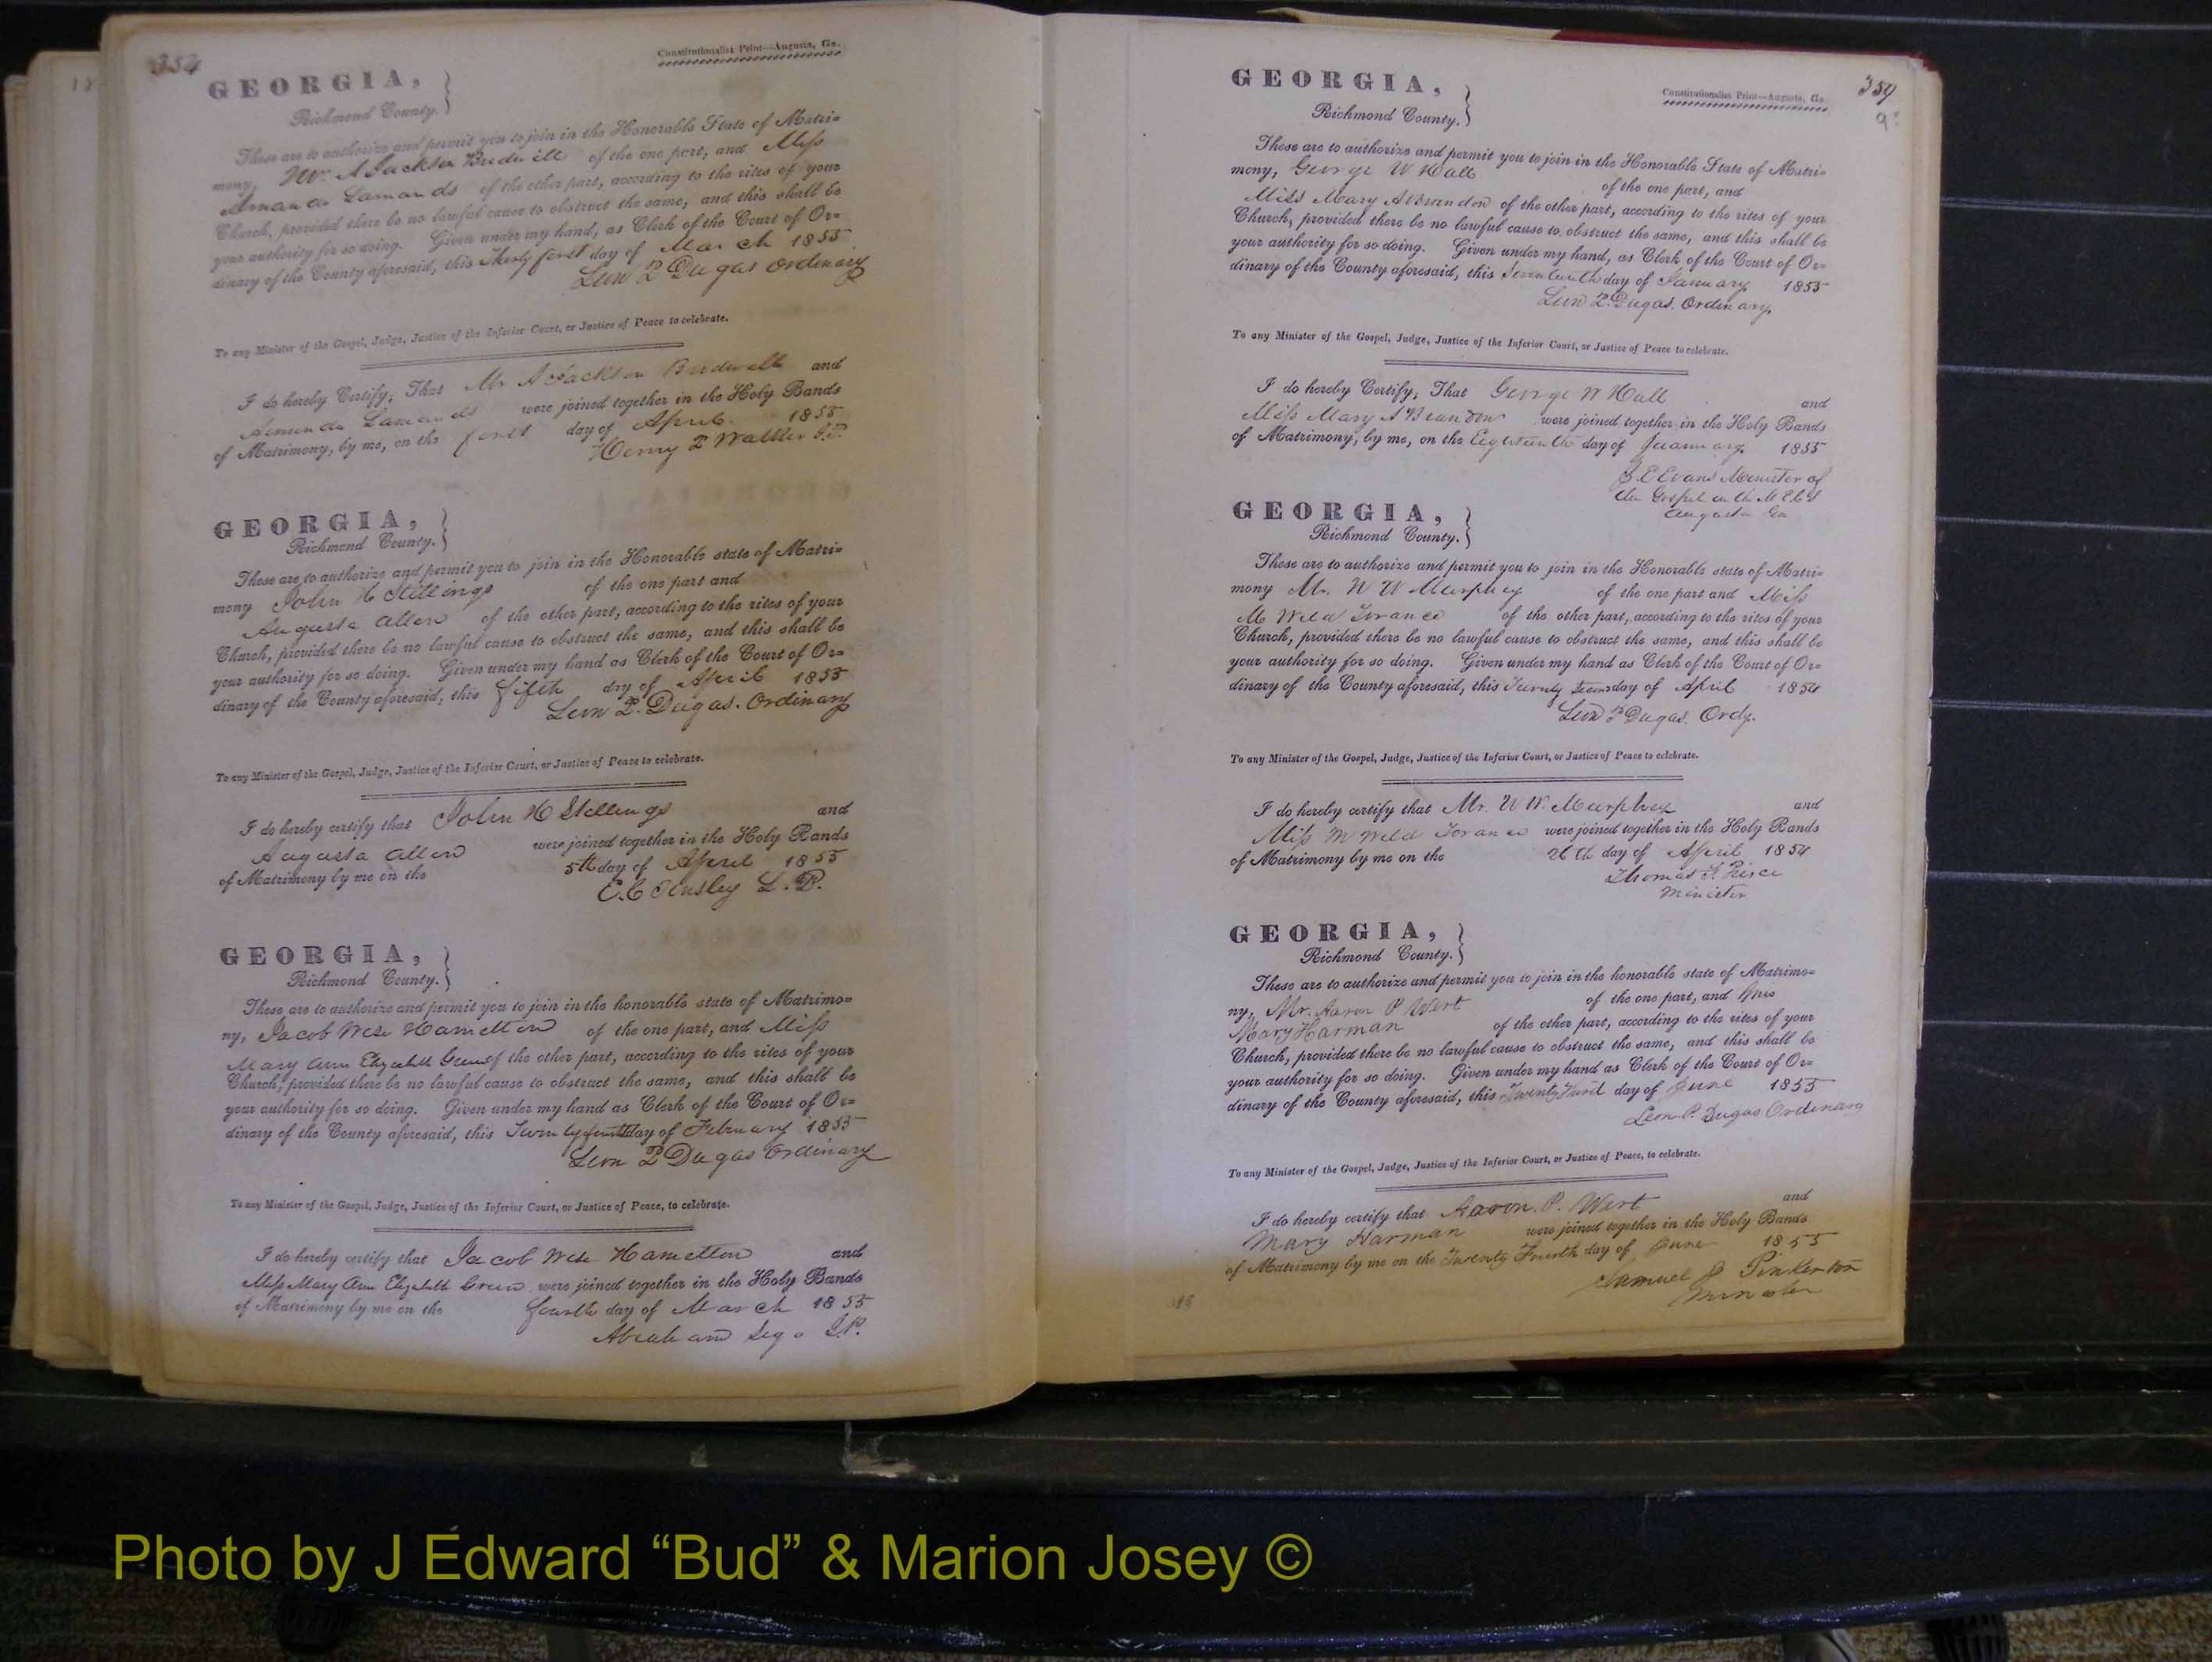 354
Constitutionalist Print—Augusta, Ga.
GEORGIA,
Richmond County.
These are to authorize and permit you to join in the Honorable State of Matri=
mony, Mr. A Jackson of the one part, and Miss
Amanda Lamands of the other part, according to the rites of your
Church, provided there be no lawful cause to obstruct the same, and this shall be
your authority for so doing. Given under my hand, as Clerk of the Court of Or=
dinary of the County aforesaid, this Thirty first day of March 1855
Leon P Dugas Ordinary
To any Minister of the Gospel, Judge, Justice of the Inferior Court, or Justice of Peace to celebrate.
I do hereby Certify, That Mr A Jackson and
Amanda Lamands were joined together in the Holy Bands
of Matrimony, by me, on the first day of April 1855
Henry P Walker J.P.
GEORGIA,
Richmond County.
These are to authorize and permit you to join in the Honorable state of Matri=
mony John H Stellings of the one part and
Augusta Allen of the other part, according to the rites of your
Church, provided there be no lawful cause to obstruct the same, and this shall be
your authority for so doing. Given under my hand as Clerk of the Court of Or=
dinary of the County aforesaid, this fifth day of April 1855
Leon P. Dugas. Ordinary
To any Minister of the Gospel, Judge, Justice of the Inferior Court, or Justice of Peace to celebrate.
I do hereby certify that John H Stellings and
Augusta Allen were joined together in the Holy Bands
of Matrimony by me on the 5th day of April 1855
GEORGIA,
Richmond County.
These are to authorize and permit you to join in the honorable state of Matrimo=
ny, Jacob Hamelton of the one part, and Miss
Mary Ann Elizabeth Green of the other part, according to the rites of your
Church, provided there be no lawful cause to obstruct the same, and this shall be
your authority for so doing. Given under my hand as Clerk of the Court of Or=
dinary of the County aforesaid, this day of February 1855
Leon P Dugas Ordinary
To any Minister of the Gospel, Judge, Justice of the Inferior Court, or Justice of Peace, to celebrate.
I do hereby certify that Jacob Hamelton and
Miss Mary Ann Elizabeth Green were joined together in the Holy Bands
of Matrimony by me on the fourth day of March 1855
J.P.
359
Constitutionalist Print—Augusta, Ga.
GEORGIA,
Richmond County.
These are to authorize and permit you to join in the Honorable State of Matri=
mony, George W Hall of the one part, and
Miss Mary A Brandon of the other part, according to the rites of your
Church, provided there be no lawful cause to obstruct the same, and this shall be
your authority for so doing. Given under my hand, as Clerk of the Court of Or=
dinary of the County aforesaid, this day of January 1855
Leon P. Dugas. Ordinary,
To any Minister of the Gospel, Judge, Justice of the Inferior Court, or Justice of Peace to celebrate.
I do hereby Certify, That George W Hall and
Miss Mary A Brandon were joined together in the Holy Bands
of Matrimony, by me, on the Eighteenth day of 1855
J. E Evans Minister of
the Gospel in the
Augusta Ga
GEORGIA,
Richmond County.
These are to authorize and permit you to join in the Honorable state of Matri=
mony Mr. W W Murphey of the one part and Miss
M Torance of the other part, according to the rites of your
Church, provided there be no lawful cause to obstruct the same, and this shall be
your authority for so doing. Given under my hand as Clerk of the Court of Or=
dinary of the County aforesaid, this day of April 1854
Leon P Dugas. Ordy.
To any Minister of the Gospel, Judge, Justice of the Inferior Court, or Justice of Peace to celebrate.
I do hereby certify that Mr. W W. Murphey and
Miss M Torance were joined together in the Holy Bands
of Matrimony by me on the 26th day of April 1854
Thomas F. Pierce
Minister
GEORGIA,
Richmond County.
These are to authorize and permit you to join in the honorable state of Matrimo=
ny, Mr. Aaron P Wert of the one part, and
Mary Harman of the other part, according to the rites of your
Church, provided there be no lawful cause to obstruct the same, and this shall be
your authority for so doing. Given under my hand as Clerk of the Court of Or=
dinary of the County aforesaid, this Twenty Third day of June 1855
Leon. P. Dugas Ordinary
To any Minister of the Gospel, Judge, Justice of the Inferior Court, or Justice of Peace, to celebrate.
I do hereby certify that Aaron. P. Wert and
Mary Harman were joined together in the Holy Bands
of Matrimony by me on the Twenty Fourth day of June 1855
Samuel J Pinkerton
Minister
Photo by J Edward “Bud” & Marion Josey ©